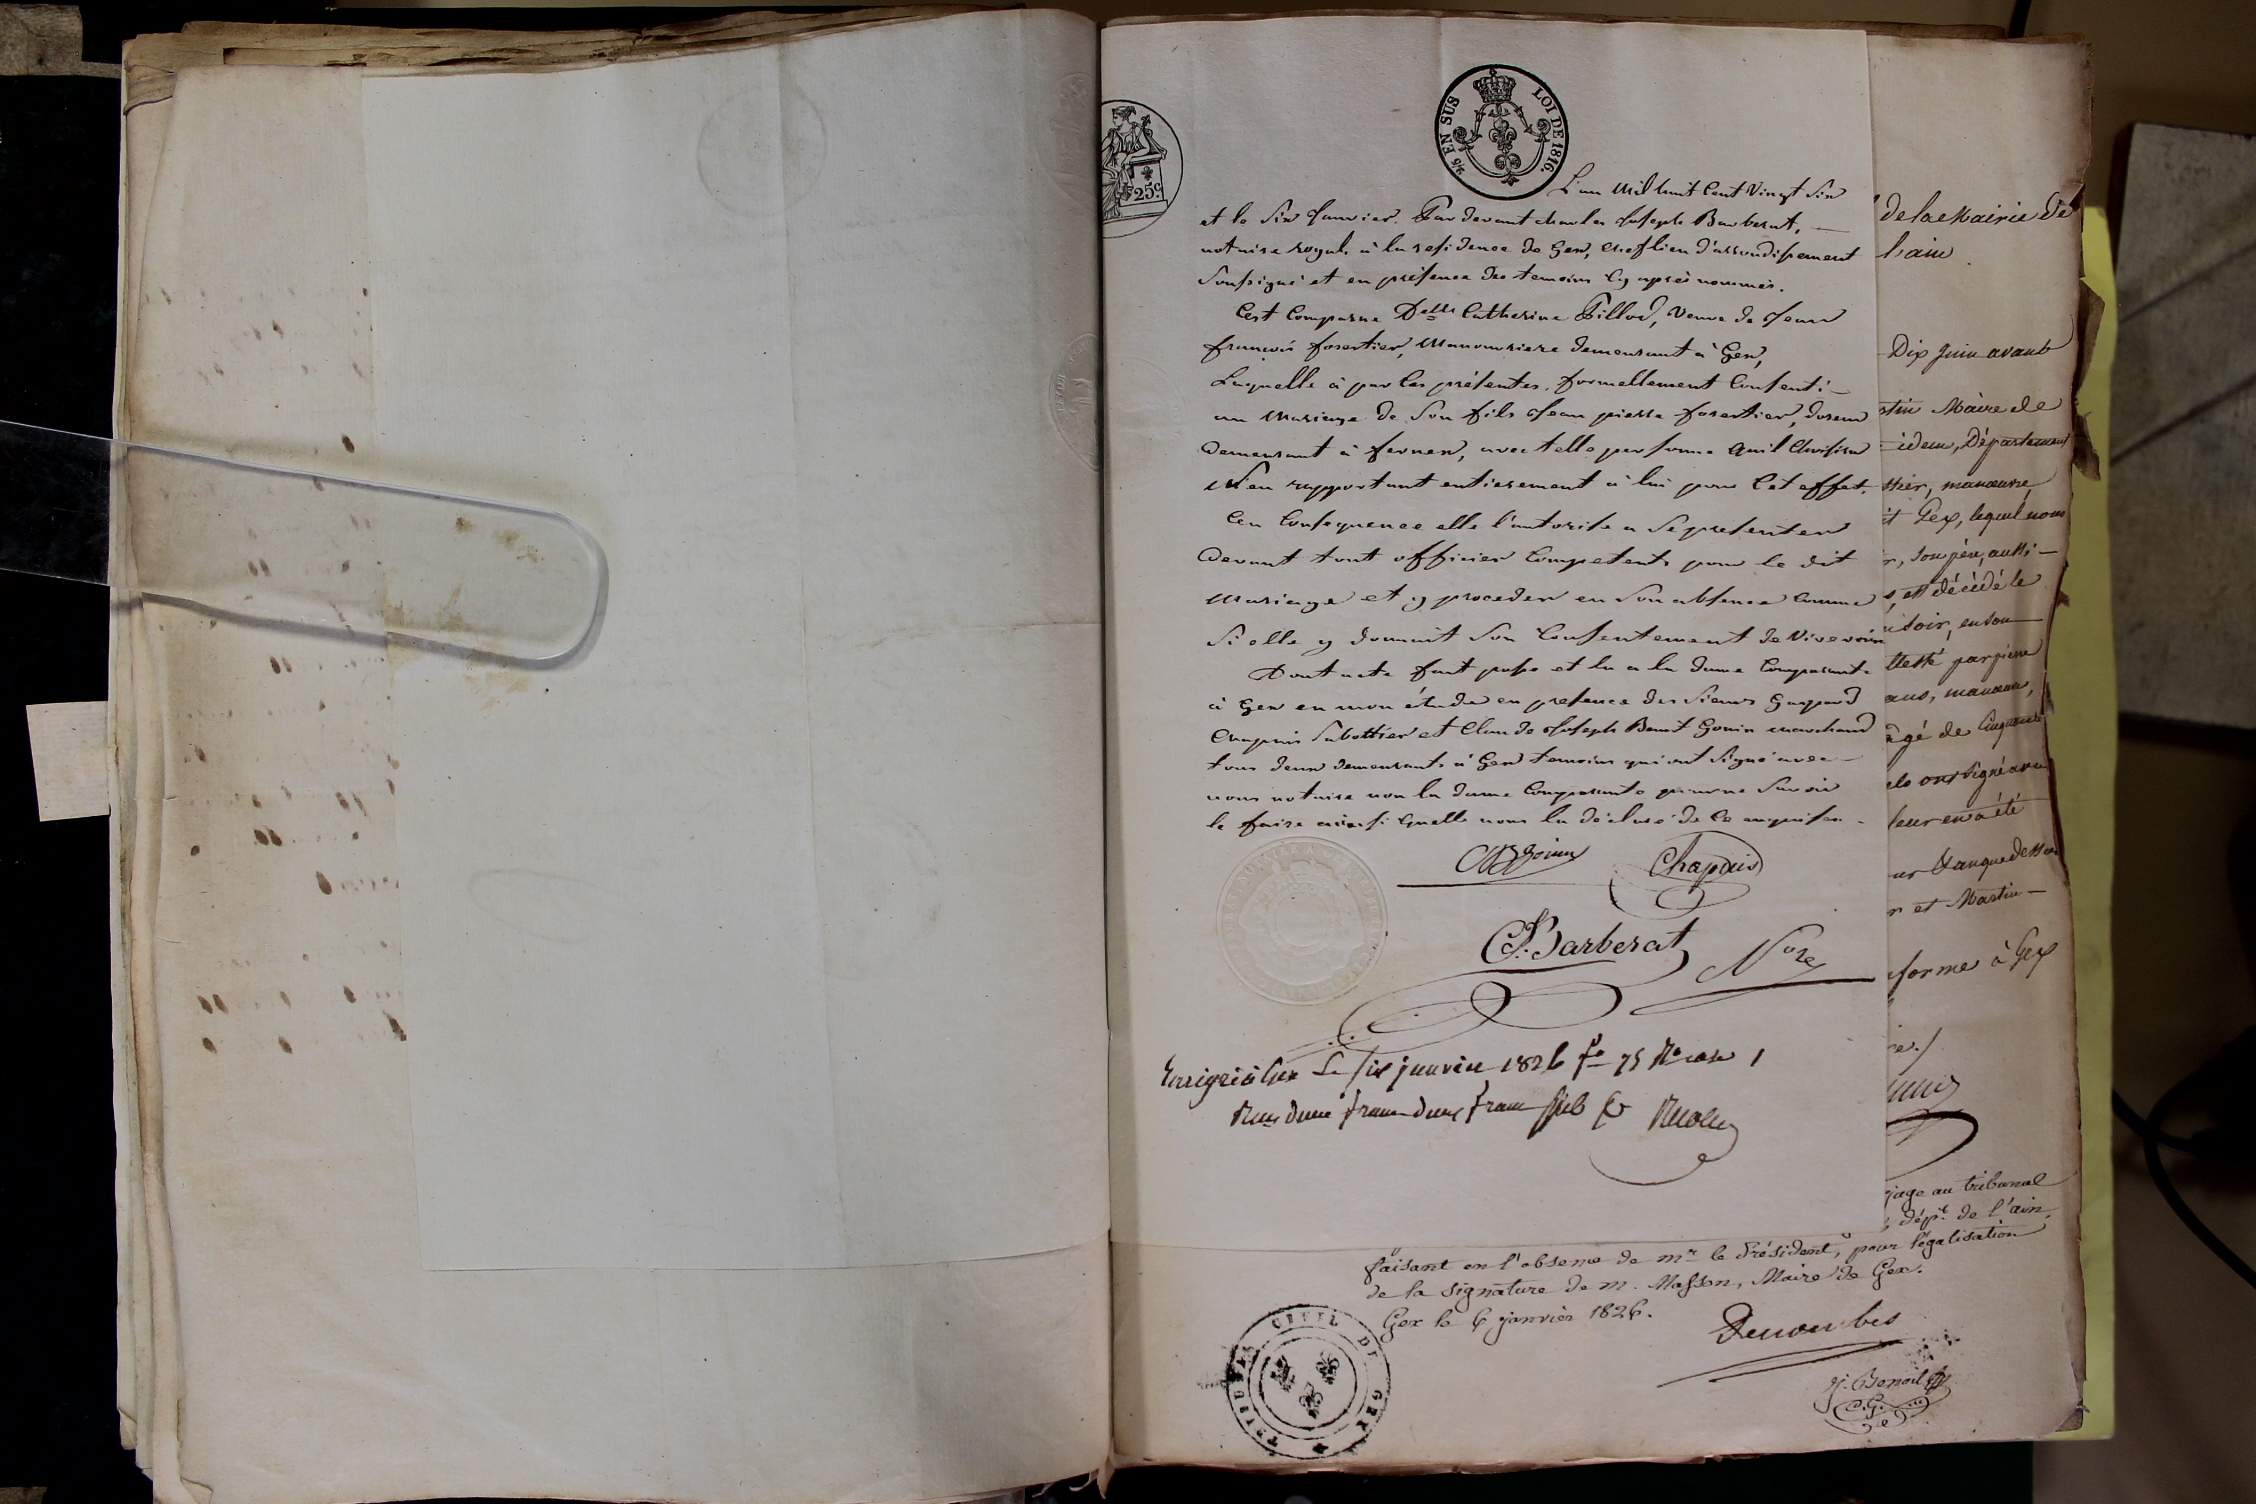 2/5 EN SUS LOI DE 1816.
25c.
L'an Mil huit Cent Vingt Six
et le Six Janvier. Par devant charles Joseph Barberat,
notaire royal à la residence de Gex, chef lieu d'arrondissement
Soussigné et en présence des temoins cy après nommés.
Est Comparue Delle Catherine Pillod, Veuve de Jean
françois forestier, Manouvriere demeurant à Gex,
Laquelle à par les présentes, formellement Consenti
au Mariage de Son fils Jean pierre forestier,
demeurant à fernex, avec telle personne quil Choisira
S'en rapportant entierement à lui pour Cet effet.
En Consequence elle l'autorise a Se presenter
devant tout officier Competent pour le dit
Mariage et y proceder en Son absence Comme
Si elle y donnait Son Consentement de Vive voix
Dont acte fait passé et lu a la dame Comparante
à Gex en mon étude en presence des Sieurs Gaspard
Chapuis Sabottier et Claude Joseph Benoit Gouin marchand
tous deux demeurants à Gex temoins qui ont Signé avec
nous notaire non la dame Comparante pour ne Savoir
le faire ainsi quelle nous la déclaré de Ce enquise
Chapuis
Barberat Nore
Enrigré à Gex Le six janvier 1826 fo 75 Ro case 1
de la Mairie de
l'ain
Dix Juin avant
Maire de
idem, Département
manœuvre
Gex, lequel nous
son père, aussi
est décédé le
soir, en son
par pierre
ans, manœuvre,
agé de Cinquante
ont signé avec
leur en a été
que dessus
et Martin
forme à Gex
juge au tribunal
dépt. de l'ain,
faisant en l'absence de mr le Président, pour légalisation
de la signature de m. Masson, Maire de Gex.
Gex le 6 janvier 1826.
TRIBUNAL CIVIL DE GEX
Benoit
C.G.